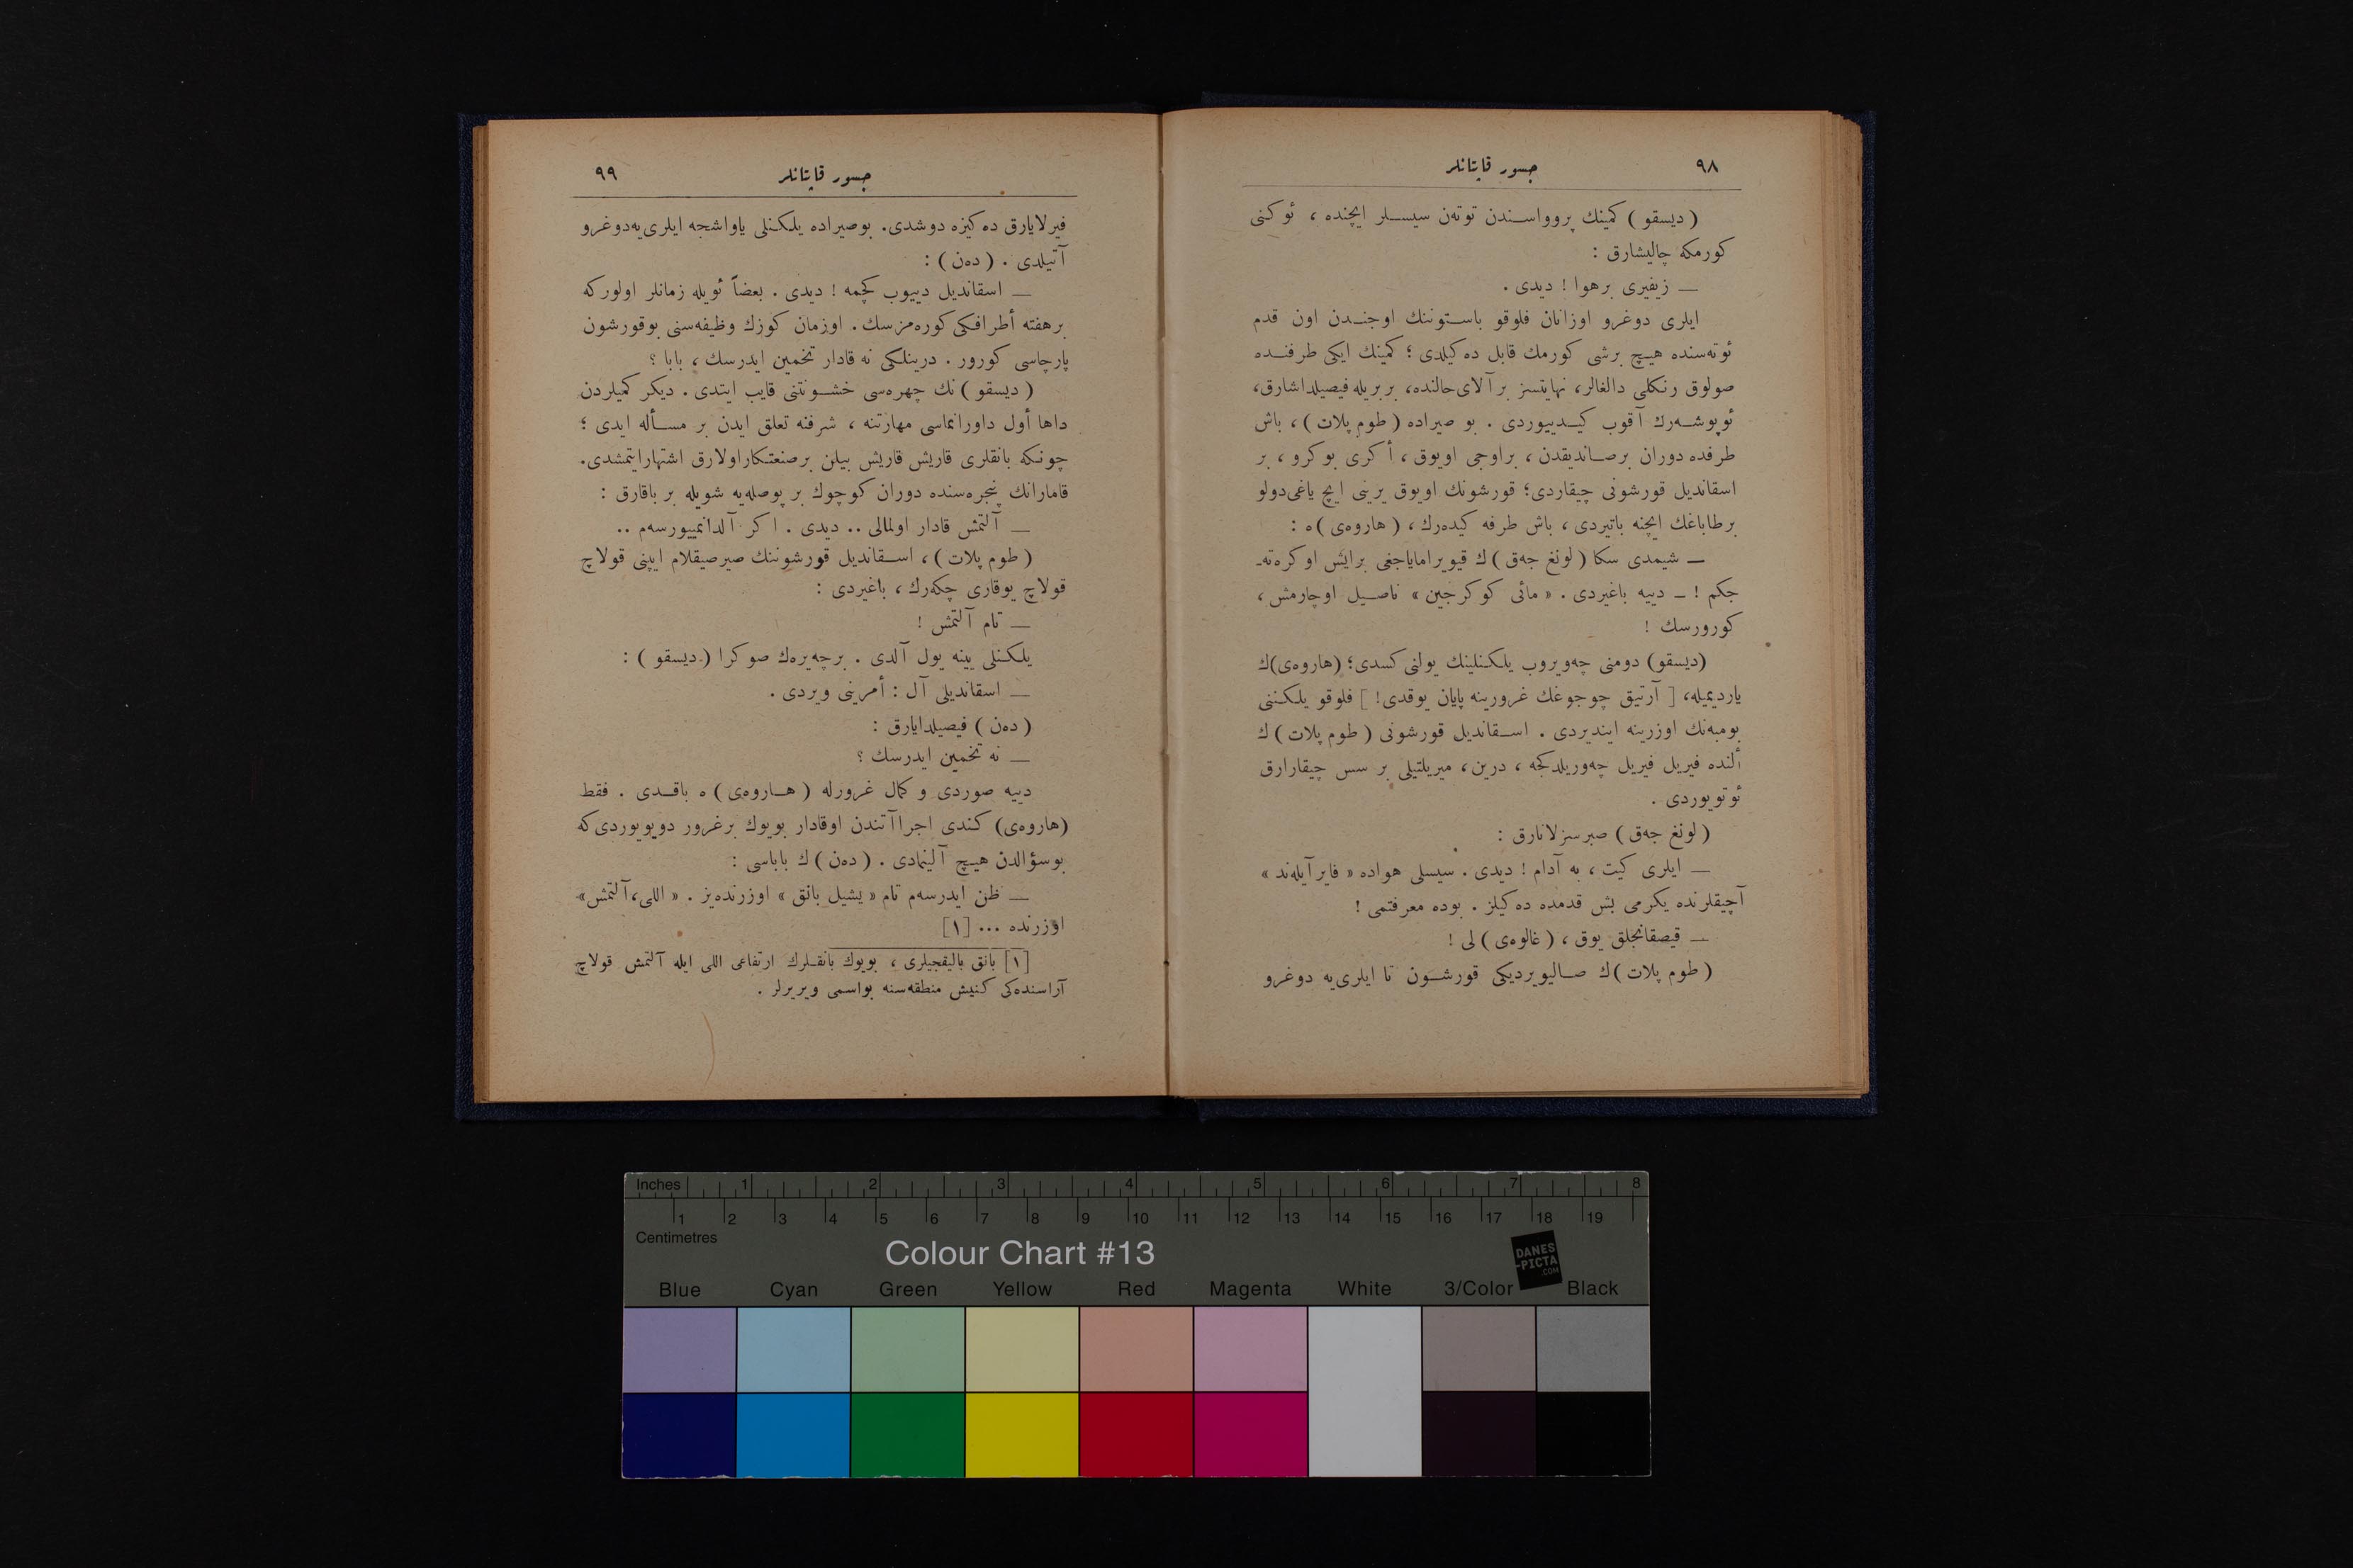 ٩٨
جسور قاپتانلر
(ديسقو) كمينك پروواسندن توتەن سيسلر ايچنده ، ئوكنى
كورمكه چاليشارق :
— زيفيرى برهوا ! ديدى .
ايلرى دوغرو اوزانان فلوقو باستوننك اوجندن اون قدم
ئوتەسنده هيچ برشى كورمك قابل دەكيلدى ؛ كمينك ايكى طرفنده
صولوق رنكلى دالغالر، نهايتسز برآلاى حالنده، بربريله فيصيلداشارق،
ئوپوشەرك آقوب كيدييوردى . بو صيراده (طوم پلات) ، باش
طرفده دوران برصانديقدن ، براوجى اويوق ، أكرى بوكرو ، بر
اسقانديل قورشونى چيقاردى؛ قورشونك اويوق يرينى ايچ ياغى دولو
برطاباغك ايچنه باتيردى ، باش طرفه كيدەرك ، (هاروەى) ه :
— شيمدى سكا (لونغ جەق) ك قيويراماياجغى برايش اوكرەتە-
جكم ! - دييه باغيردى . « مائى كوكرجين » ناصيل اوچارمش ،
كورورسك !
(ديسقو) دومنى چەويروب يلكنلينك يولنى كسدى؛ (هاروەى)ك
يارديميله، [ آرتيق چوجوغك غرورينه پايان يوقدى! ] فلوقو يلكننى
بومبەنك اوزرينه اينديردى . اسقانديل قورشونى (طوم پلات) ك
ألنده فيريل فيريل چەوريلدكجه ، درين، ميريلتيلى بر سس چيقارارق
ئوتويوردى .
(لونغ جەق) صبرسزلانارق :
— ايلرى كيت ، به آدام ! ديدى . سيسلى هواده « فاير آيلەند »
آچيقلرنده يكرمى بش قدمده دەكيلز . بوده معرفتمى !
— قيصقانجلق يوق ، (غالوەى) لى !
(طوم پلات)ك صاليويرديكى قورشون تا ايلرىيه دوغرو
جسور قاپتانلر
٩٩
فيرلايارق دەكيزه دوشدى. بوصيراده يلكنلى ياواشجه ايلرىيه دوغرو
آتيلدى . (دەن) :
— اسقانديل دييوب كچمه ! ديدى . بعضاً ئويله زمانلر اولوركه
برهفته أطرافكى كورەمزسك . اوزمان كوزك وظيفەسنى بوقورشون
پارچاسى كورور . درينلكى نه قادار تخمين ايدرسك ، بابا ؟
(ديسقو) نك چهرەسى خشونتنى قايب ايتدى . ديكر كميلردن
داها أول داورانماسى مهارتنه ، شرفنه تعلق ايدن بر مسأله ايدى ؛
چونكه بانقلرى قاريش قاريش بيلن برصنعتكاراولارق اشتهارايتمشدى.
قامارانك پنجرەسنده دوران كوچوك بر پوصلەيه شويله بر باقارق :
— آلتمش قادار اولمالى .. ديدى . اكر آلدانمييورسەم ..
(طوم پلات) ، اسقانديل قورشوننك صيرصيقلام ايپنى قولاچ
قولاچ يوقارى چكەرك ، باغيردى :
— تام آلتمش !
يلكنلى يينه يول آلدى . برچەيرەك صوكرا (ديسقو) :
— اسقانديلى آل : أمرينى ويردى .
(دەن) فيصيلدايارق :
— نه تخمين ايدرسك ؟
دييه صوردى و كمال غرورله (هاروەى) ه باقدى . فقط
(هاروەى) كندى اجراآتندن اوقادار بويوك برغرور دويويوردى كه
بوسؤالدن هيچ آلينمادى . (دەن) ك باباسى :
— ظن ايدرسەم تام « يشيل بانق » اوزرندەيز . « اللى، آلتمش»
اوزرنده ... [١]
[١] بانق باليقجيلرى ، بويوك بانقلرك ارتفاعى اللى ايله آلتمش قولاچ
آراسندەكى كنيش منطقەسنه بواسمى ويريرلر .
Inches 1 2 3 4 5 6 7 8
1 2 3 4 5 6 7 8 9 10 11 12 13 14 15 16 17 18 19
Centimetres
Colour Chart #13
DANES
-PICTA
.COM
Blue Cyan Green Yellow Red Magenta White 3/Color Black